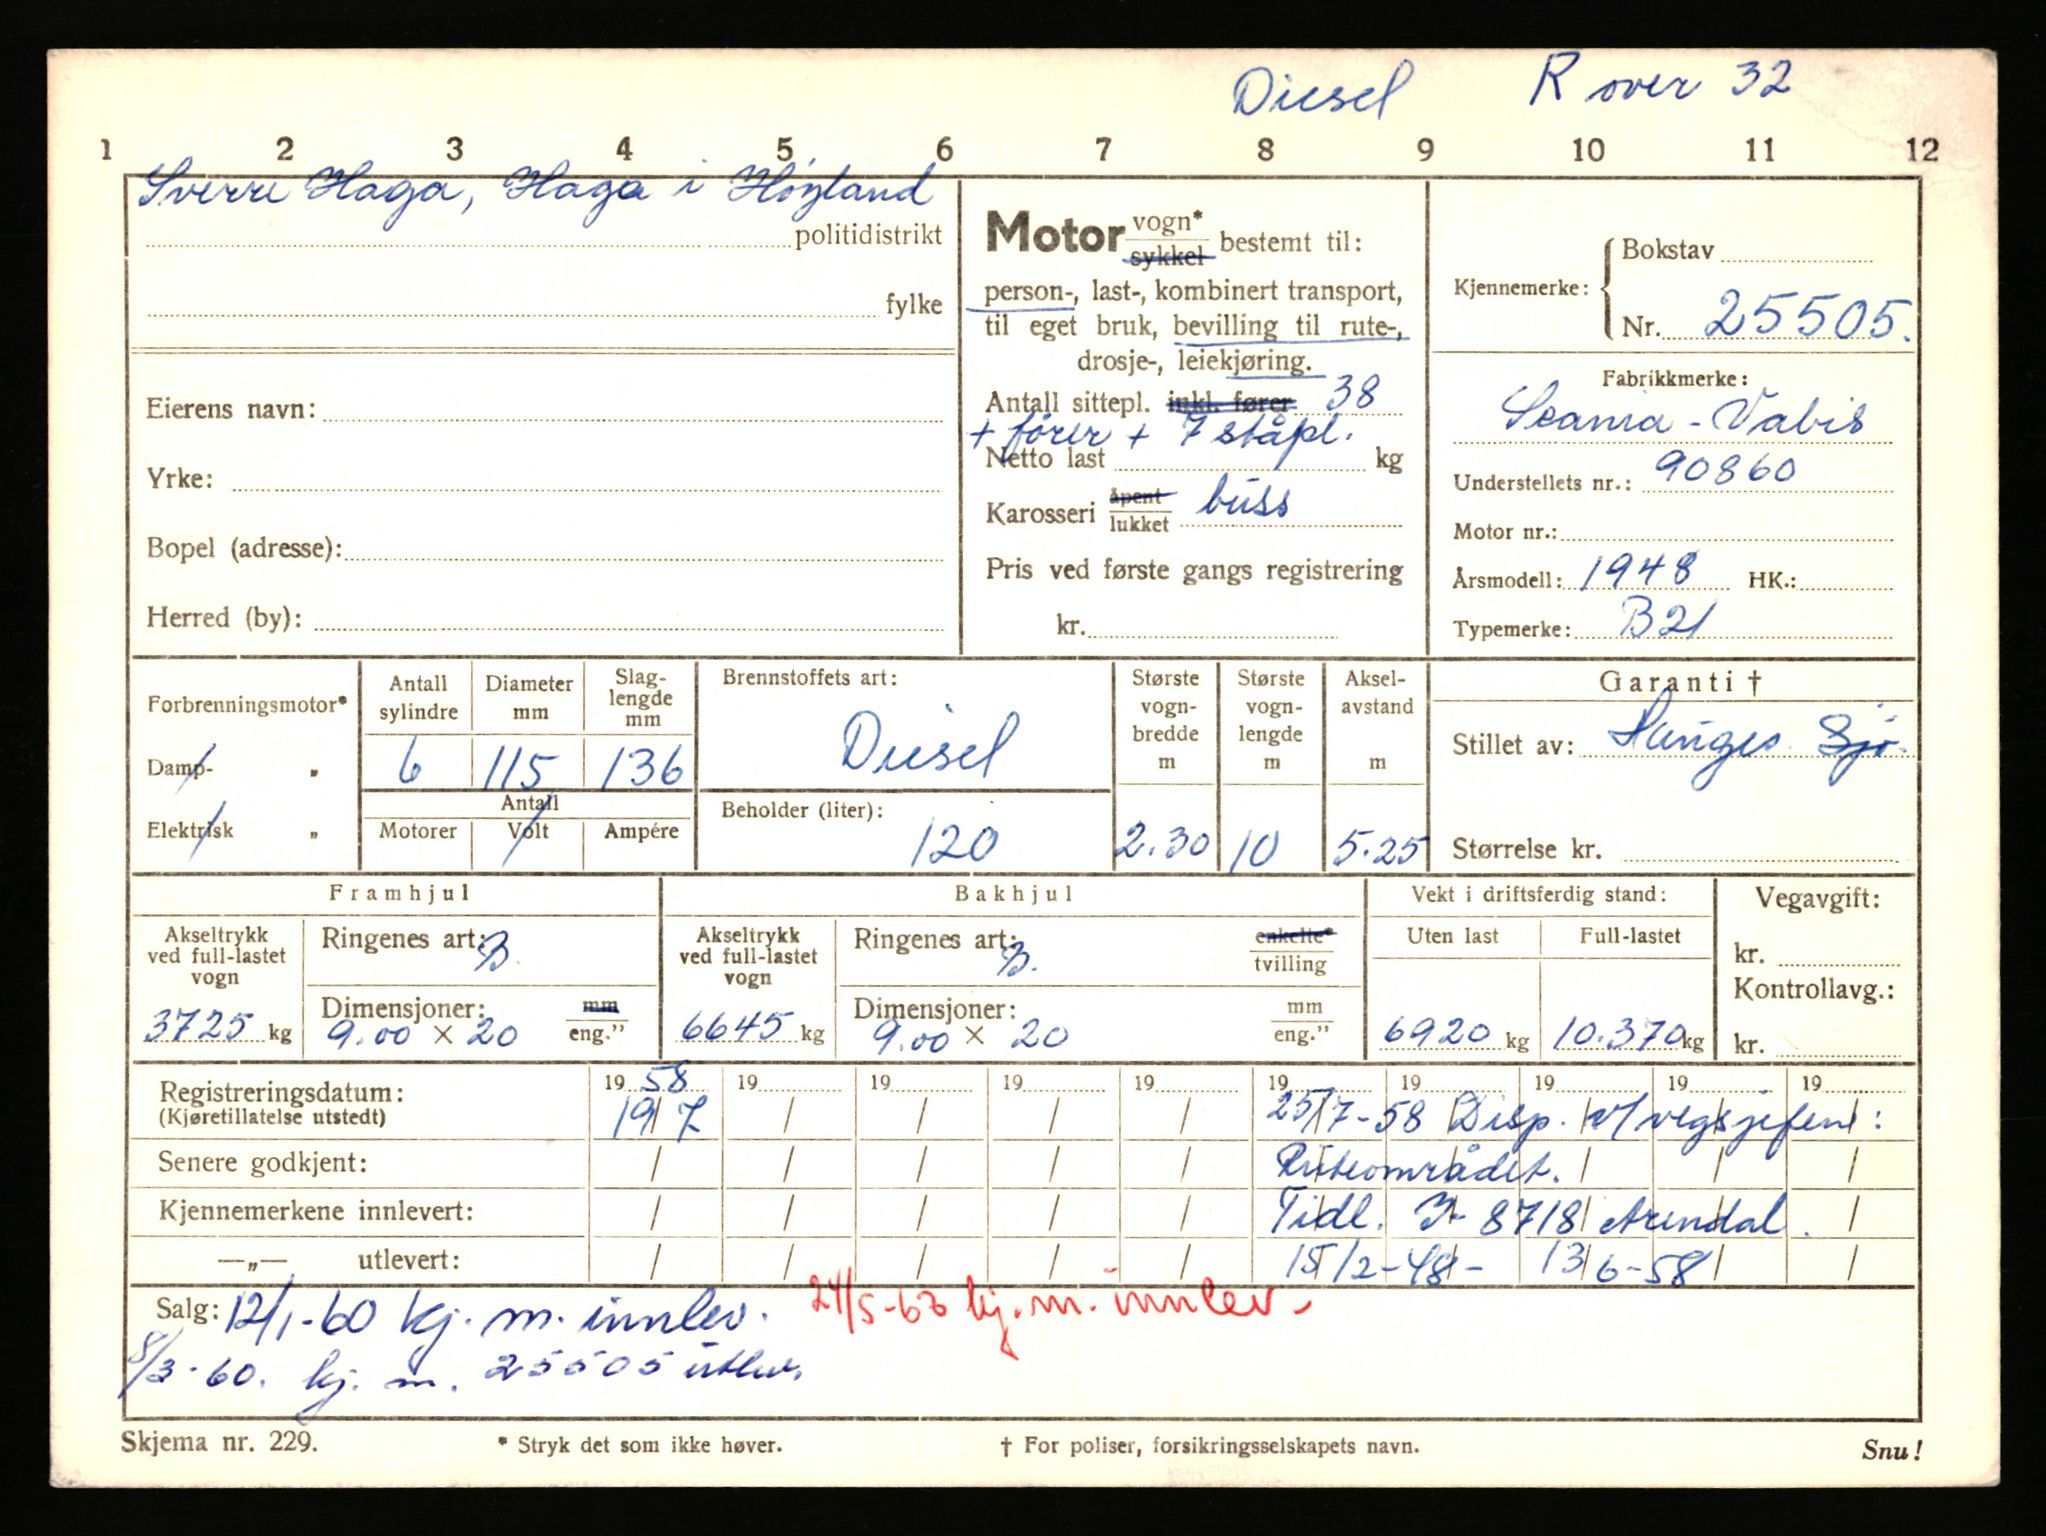 Diesel R over 32
1 2 3 4 5 6 7 8 9 10 11 12
Sverre Haga, Haga i Høyland
politidistrikt
fylke
Eierens navn:
Yrke:
Bopel (adresse):
Herred (by):
Motor vogn* sykkel bestemt til:
person-, last-, kombinert transport,
til eget bruk, bevilling til rute-,
drosje-, leiekjøring.
Antall sittepl. inkl. fører 38
+ fører + 7 ståpl.
Netto last kg
Karosseri åpent lukket buss
Pris ved første gangs registrering
kr.
Kjennemerke: Bokstav
Nr. 25505.
Fabrikkmerke:
Scania-Vabis
Understellets nr.: 90860
Motor nr.:
Årsmodell: 1948 HK.:
Typemerke: B21
Forbrenningsmotor*
Damp- „
Elektrisk „
Antall sylindre
6
Diameter mm
115
Slag-lengde mm
136
Antall
Motorer Volt Ampére
Brennstoffets art:
Diesel
Beholder (liter):
120
Største vogn-bredde m
2.30
Største vogn-lengde m
10
Aksel-avstand m
5.25
Garanti †
Stillet av: Sjø
Størrelse kr.
Framhjul
Akseltrykk ved full-lastet vogn
3725 kg
Ringenes art: B.
Dimensjoner: mm
9.00 × 20 eng."
Bakhjul
Akseltrykk ved full-lastet vogn
6645 kg
Ringenes art: B. enkelte* tvilling
Dimensjoner: mm
9.00 × 20 eng."
Vekt i driftsferdig stand:
Uten last Full-lastet
6920 kg 10.370 kg
Vegavgift:
kr.
Kontrollavg.:
kr.
Registreringsdatum: 19 58 19 19 19 19 19 19 19 19 19
(Kjøretillatelse utstedt) 19/7 / / / / 25/7-58 Disp. v/vegsjefen:
Senere godkjent: / / / / / Ruteområdet.
Kjennemerkene innlevert: / / / / / Tidl. I- 8718 Arendal.
—„— utlevert: / / / / / 15/2-48- 13/6-58
Salg: 12/1-60 kj. m. innlev. 24/5-60 kj. m. innlev.
8/3-60. kj. m. 25505 utlev.
Skjema nr. 229. * Stryk det som ikke høver. † For poliser, forsikringsselskapets navn. Snu!